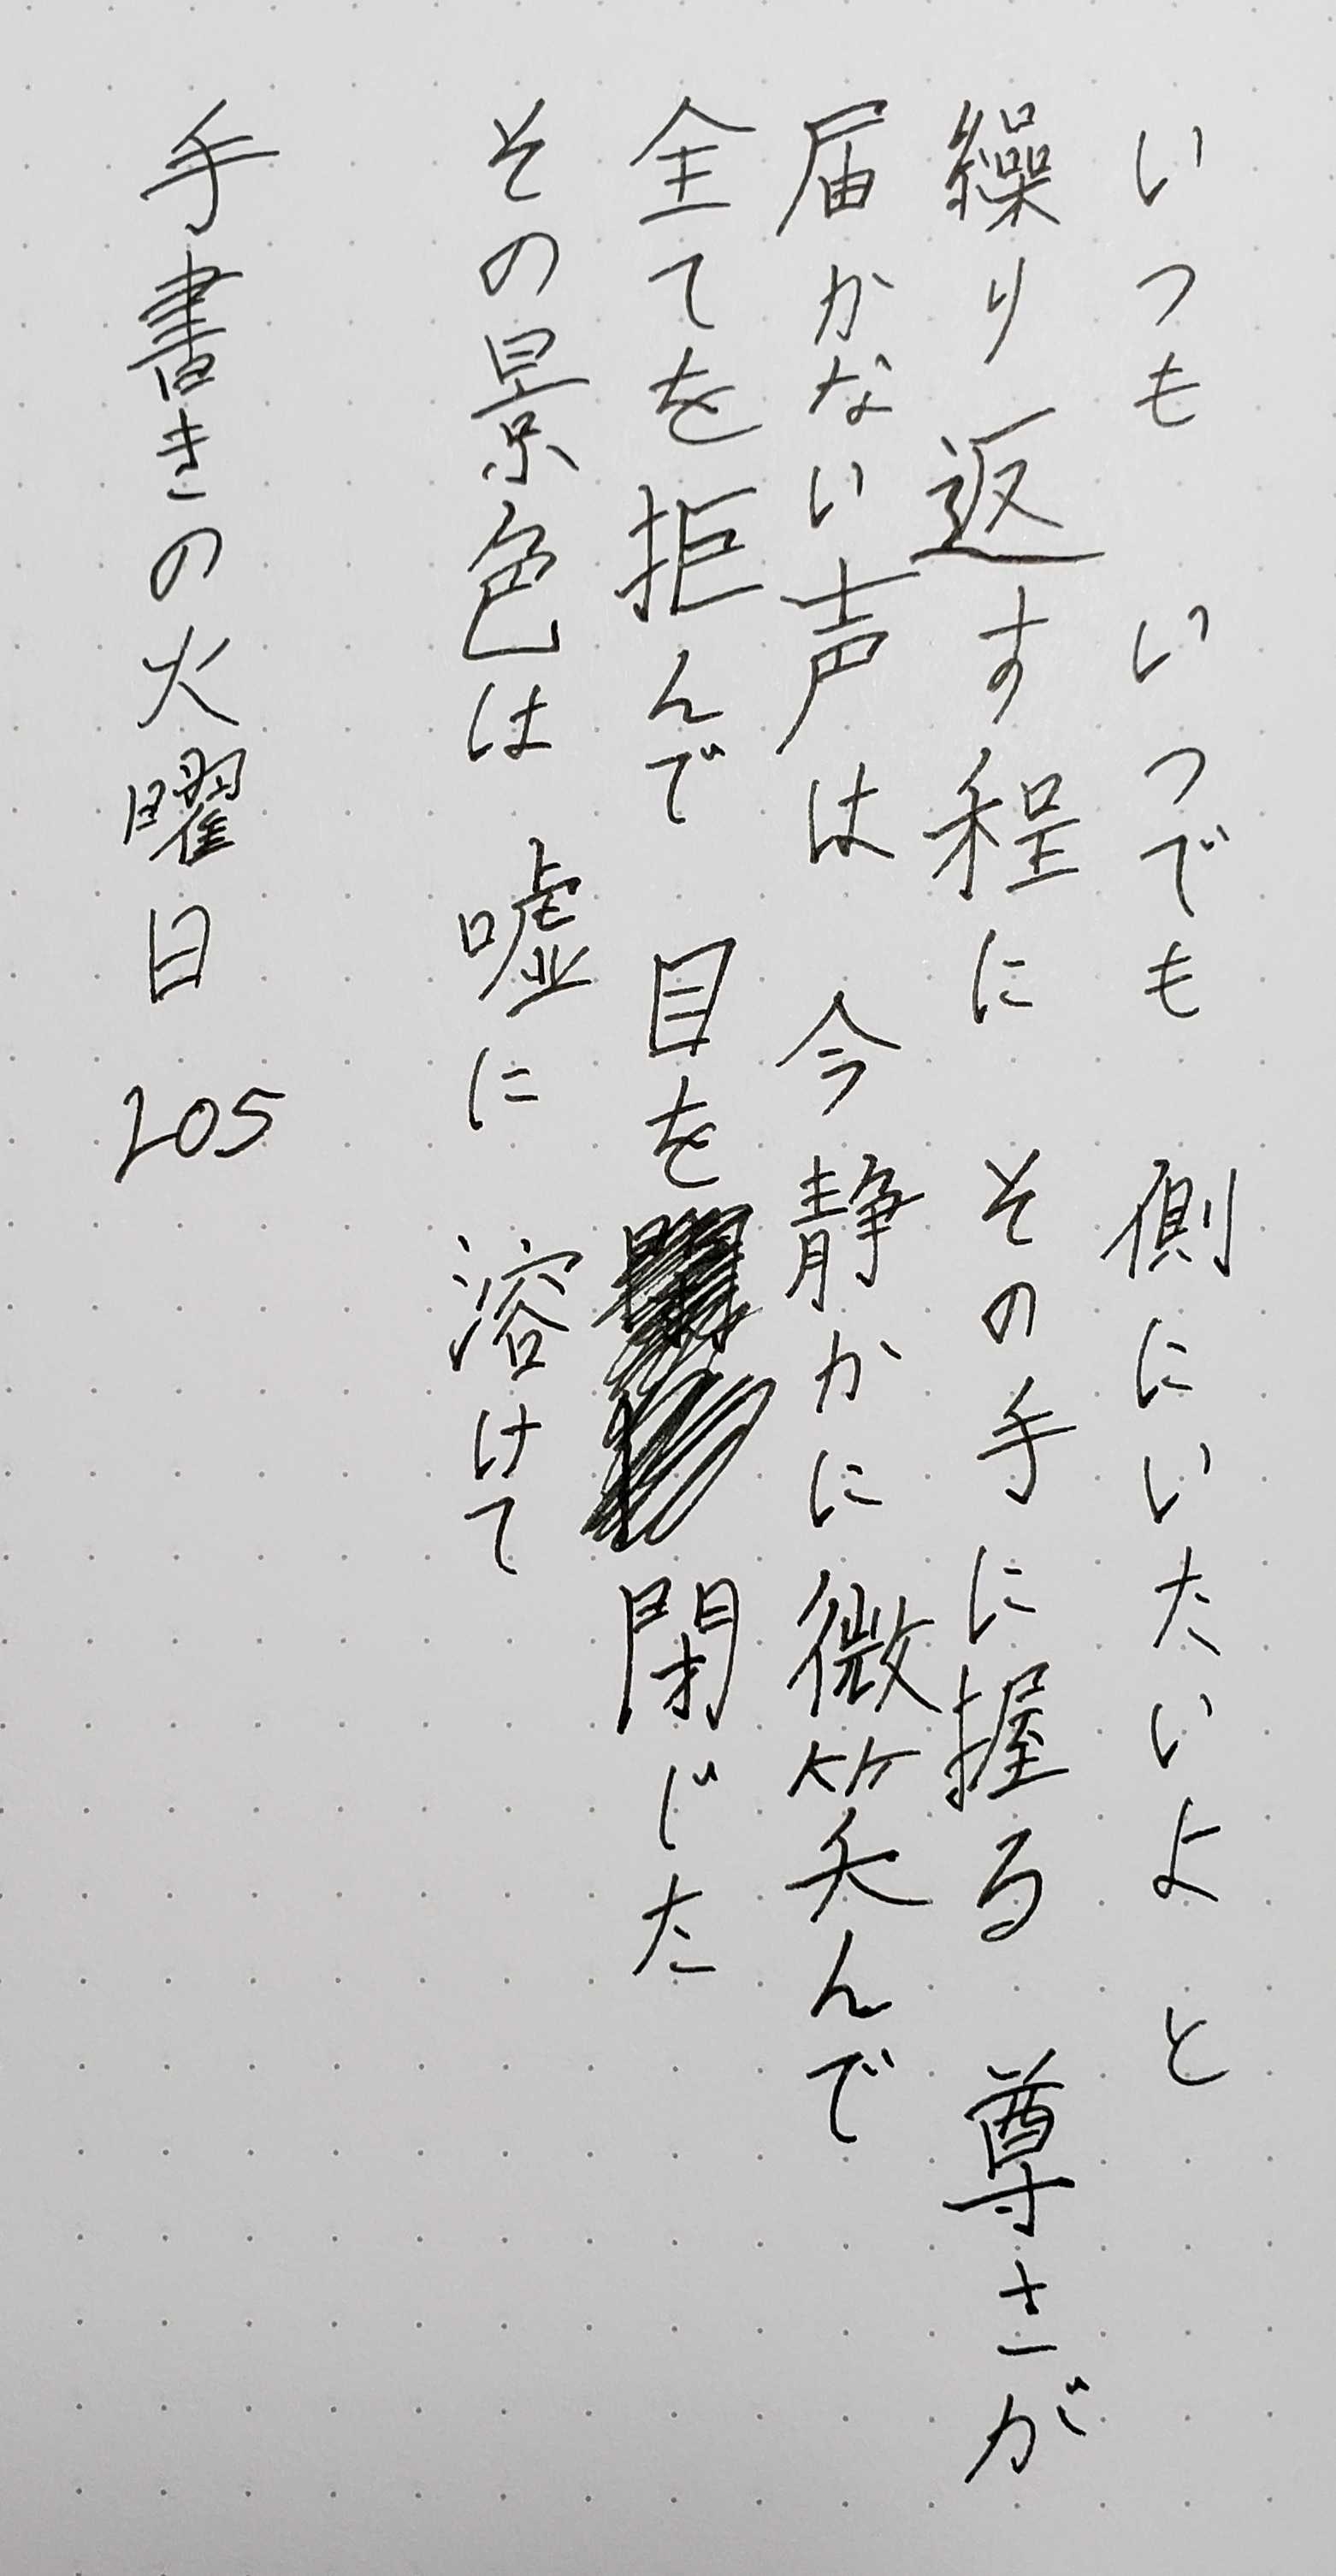 いつも いつでも 側にいたいよ と
繰り返す程に その手に握る 尊さが
届かない声は 今 静かに微笑んで
全てを拒んで 目を閉じた
その景色は 嘘に 溶けて
手書きの火曜日 205